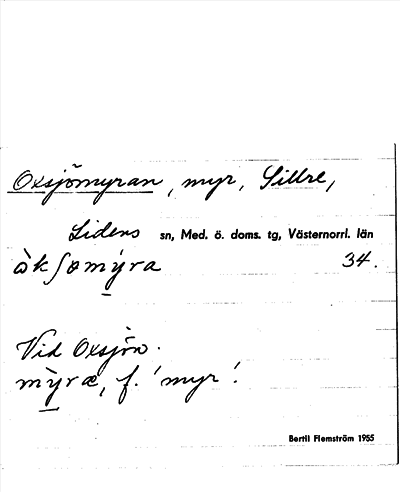 Oxsjömyran, myr, Sillre,
Lidens sn, Med. ö. doms. tg, Västernorrl. län
òkʃømỳra 34.
Vid Oxsjön.
mỳræ, f. 'myr'.
Bertil Flemström 1955